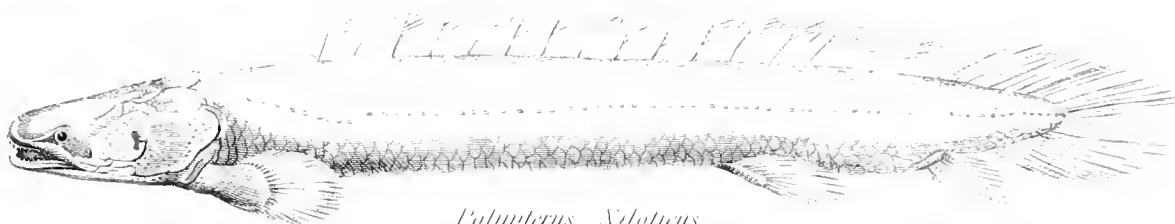 Polypterus Niloticus